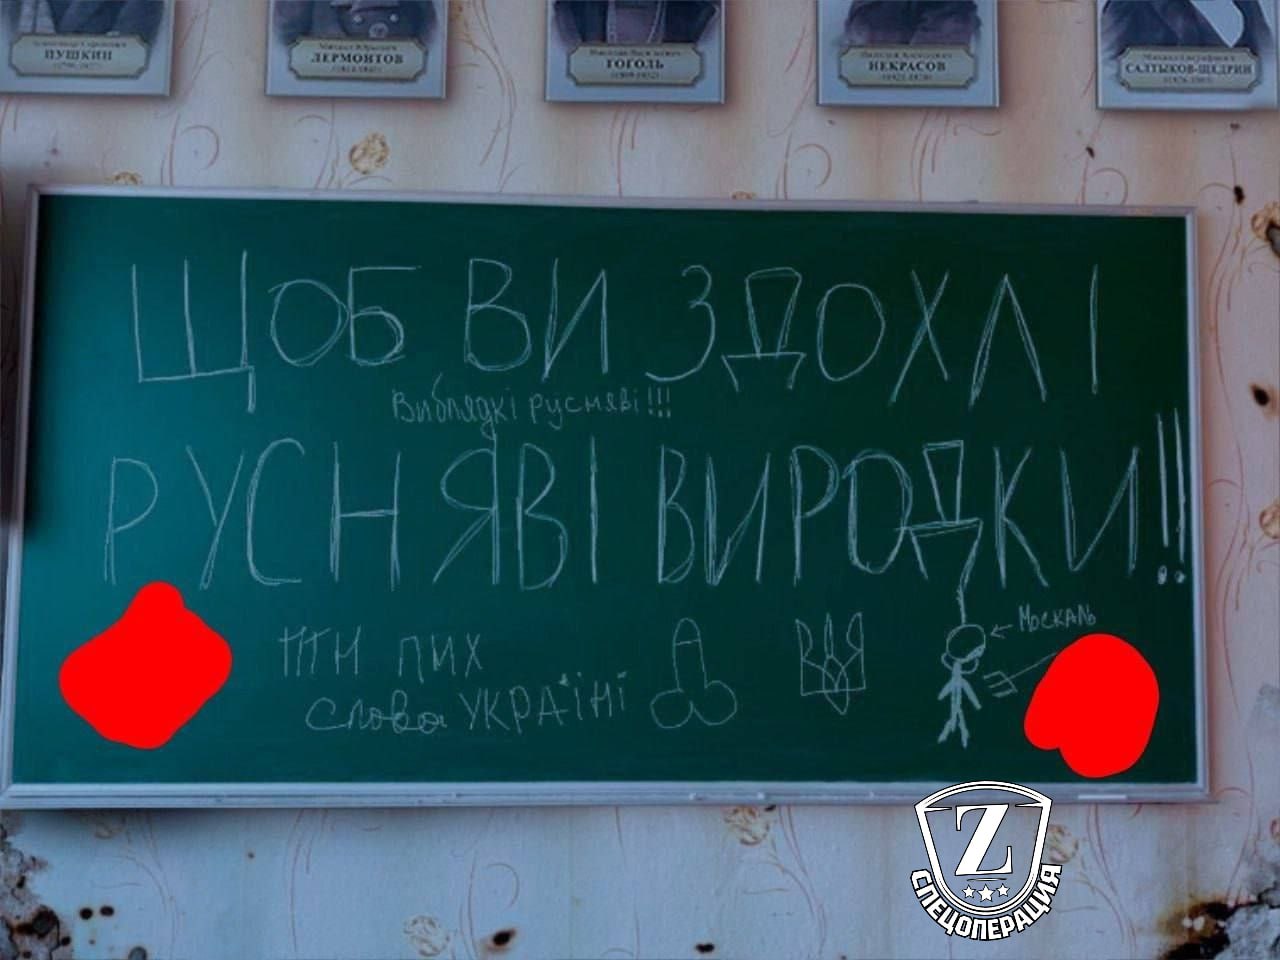 ПУШКИН
ЛЕРМОНТОВ
ГОГОЛЬ
НЕКРАСОВ
САЛТЫКОВ-ЩЕДРИН
ЩОБ ВИ ЗДОХЛІ
Виблядкі русняві!!!
РУСНЯВІ ВИРОДКИ!!
ПТН ПНХ
Слава УКРАЇНІ
Москаль
Z
СПЕЦОПЕРАЦИЯ